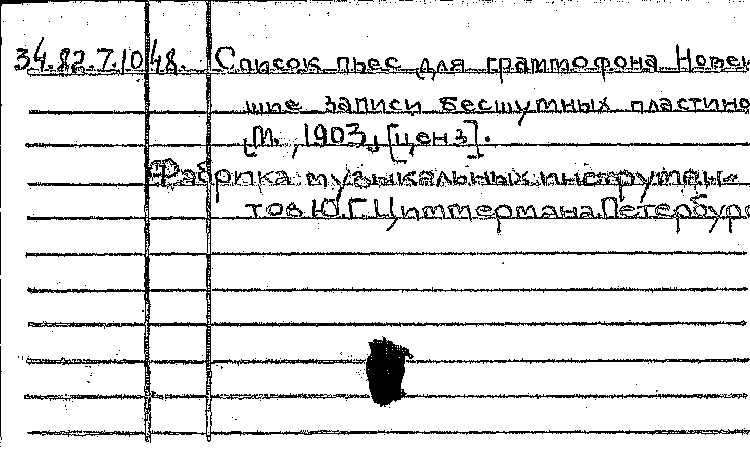 34.82.7.1048. Список пьес для граммофона Новей
шие записи бесшумных пластино
[М., 1903,] [ценз].
Фабрика музыкальных инструмен-
тов Ю.Г.Циммермана.Петербург